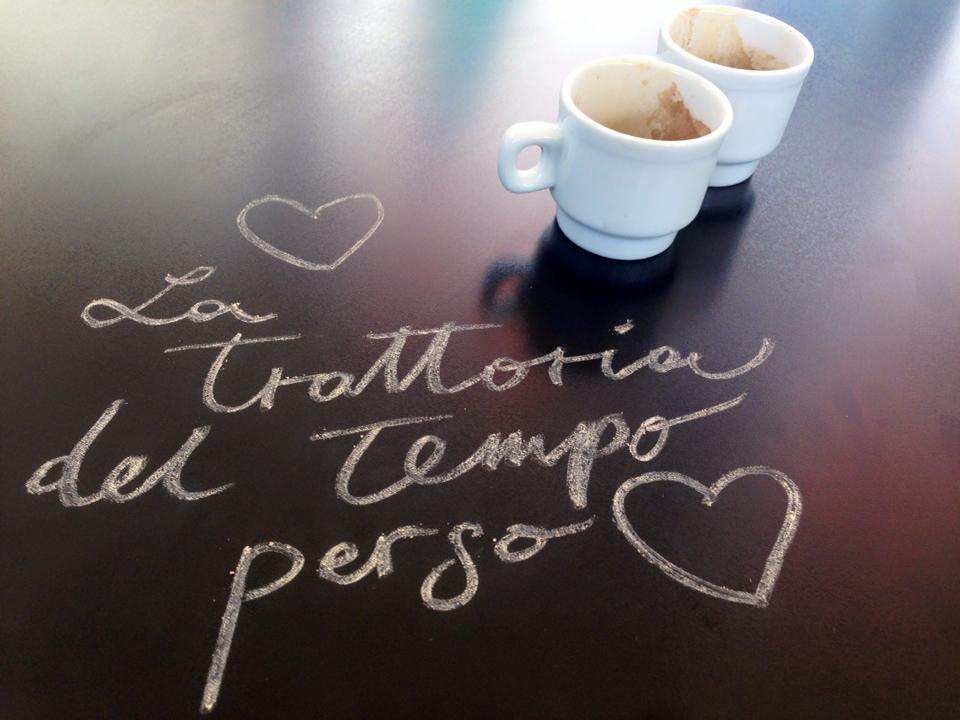 La
trattoria
del tempo
perso